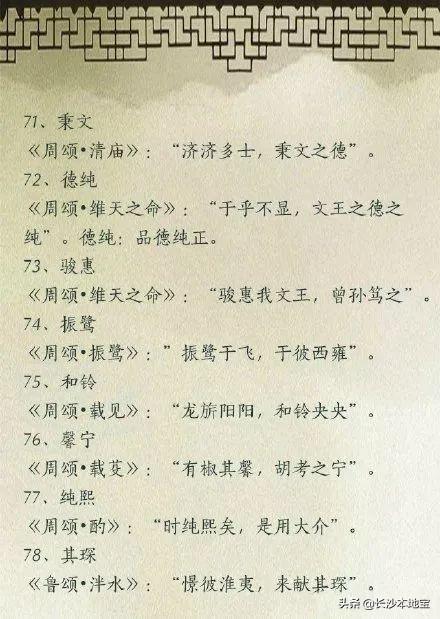 71、秉文
《周颂•清庙》：“济济多士，秉文之德”。
72、德纯
《周颂•维天之命》：“于乎不显，文王之德之
纯”。德纯：品德纯正。
73、骏惠
《周颂•维天之命》：“骏惠我文王，曾孙笃之”。
74、振鹭
《周颂•振鹭》：”振鹭于飞，于彼西雍”。
75、和铃
《周颂•载见》：“龙旂阳阳，和铃央央”。
76、馨宁
《周颂•载芟》：“有椒其馨，胡考之宁”。
77、纯熙
《周颂•酌》：“时纯熙矣，是用大介”。
78、其琛
《鲁颂•泮水》：“憬彼淮夷，来献其琛”。
头条 @长沙本地宝